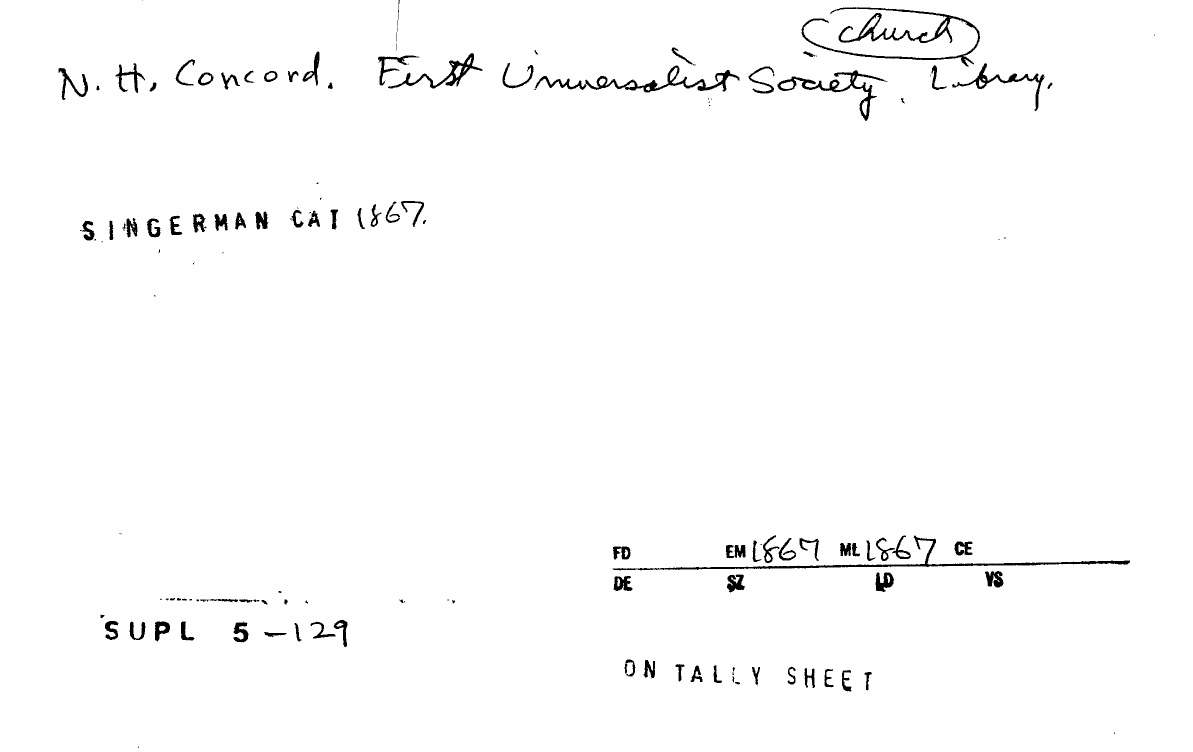 church
N. H. Concord. First Universalist Society. Library.
SINGERMAN CAT 1867.
FD EM 1867 ML 1867 CE
DE SZ LD VS
SUPL 5 - 129
ON TALLY SHEET